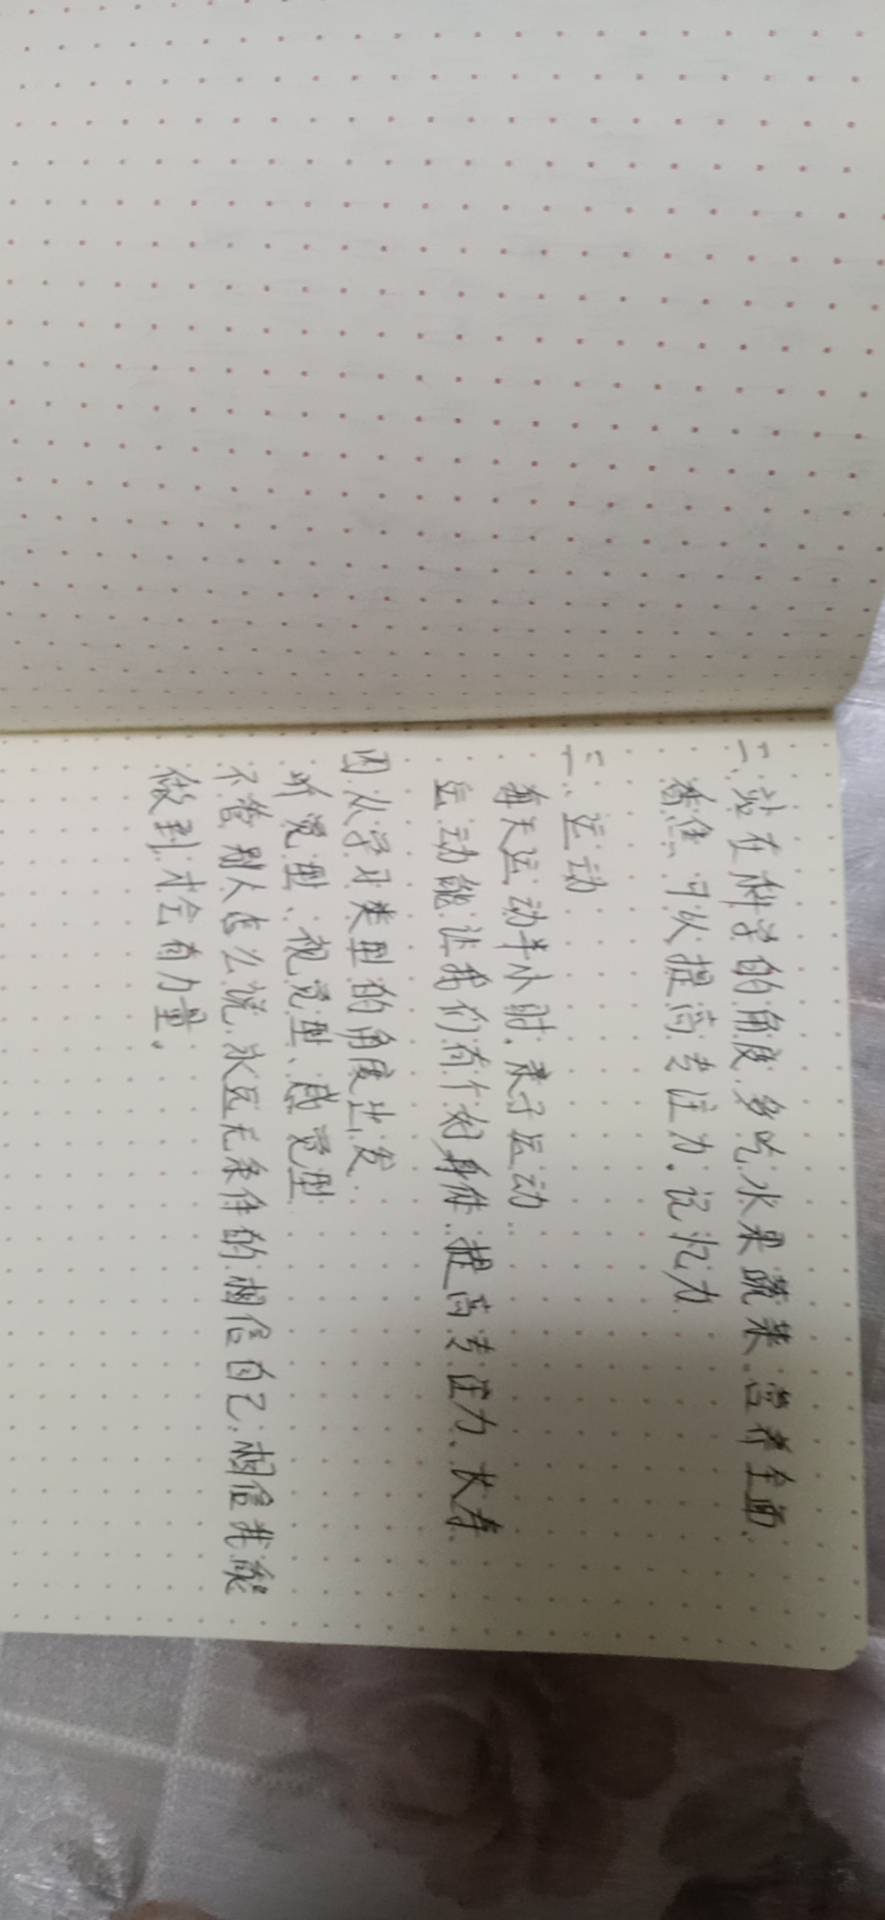 二、站在科学的角度多吃水果蔬菜、营养全面
香焦、可以提高专注力。记忆力
三、运动
每天运动半小时、亲子运动
运动能让我们有个好身体、提高专注力、长寿
四从学习类型的角度出发
听觉型、视觉型、感觉型
不管别人怎么说永远无条件的相信自己相信我能
做到才会有力量。